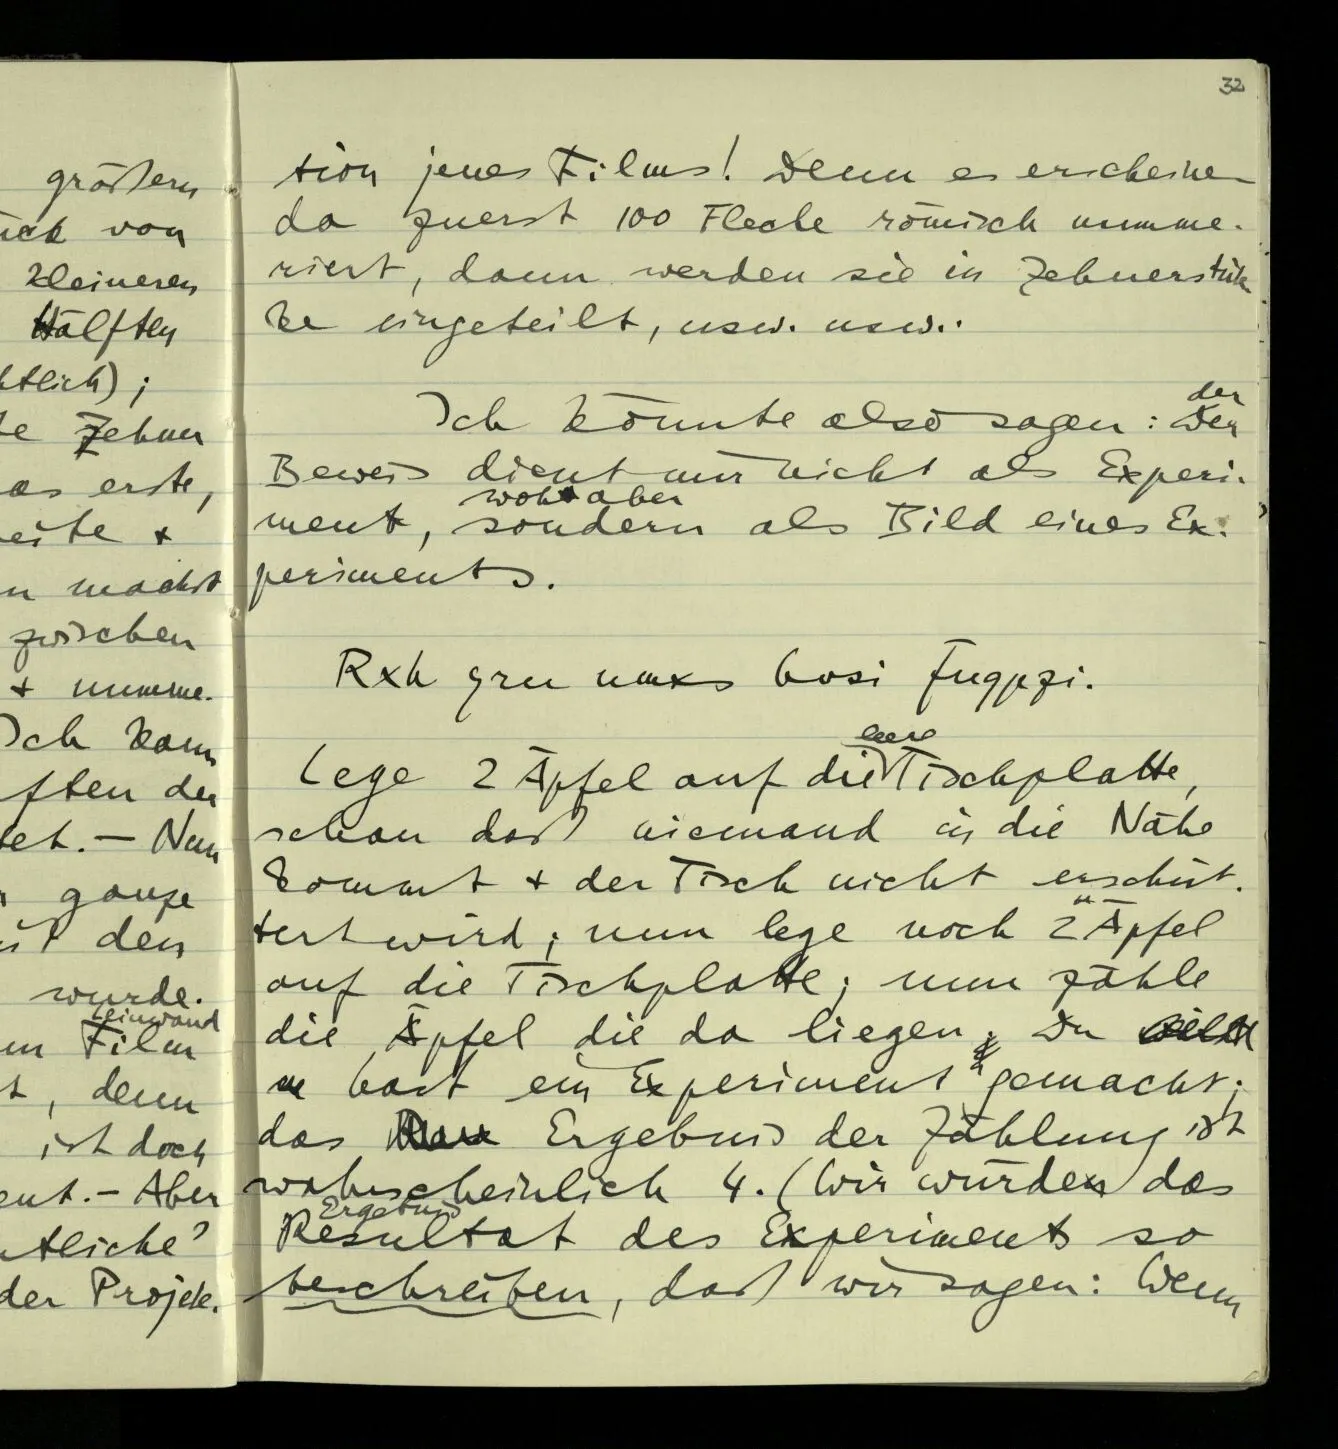 größern
von
kleineren
Hälften
tlich) ;
Zehner
as erste,
eite +
n machst
zwischen
+ numme-
Ich kann
ften der
et. — Nun
ganze
den
wurde.
Leinwand
Film
t, denn
ist doch
ent. – Aber
ntliche?
der Projek-
32
tion jenes Films! Denn es erscheinen
da zuerst 100 Flecke römisch numme-
riert, dann werden sie in Zehnerstük-
ke eingeteilt, usw. usw..
der
Ich könnte also sagen: Der
Beweis dient mir nicht als Experi-
wohl aber
ment, sondern als Bild eines Ex-
periments.
Rxh gru umxs hvsi Fugpzi.
leere
Lege 2 Äpfel auf die Tischplatte,
schau daß niemand in die Nähe
kommt + der Tisch nicht erschüt-
tert wird; nun lege noch 2 Äpfel
auf die Tischplatte; nun zähle
die Äpfel die da liegen. Du
hast ein Experiment gemacht;
das Ergebnis der Zählung ist
wahrscheinlich 4. (Wir würden das
Ergebnis
Resultat des Experiments so
beschreiben, daß wir sagen: Wenn